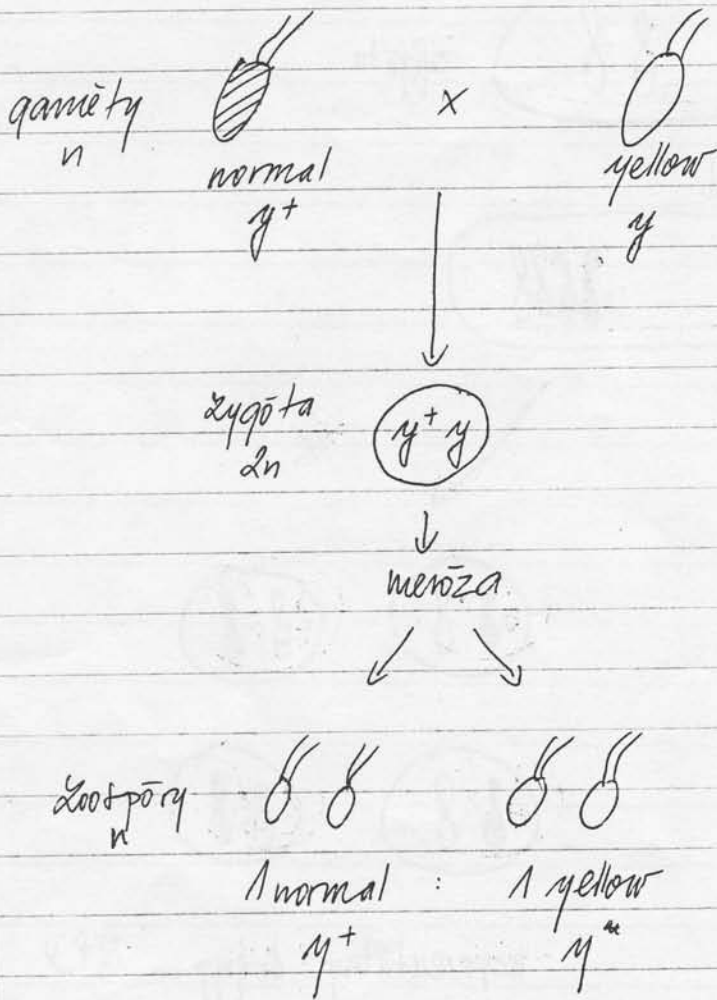 gaméty
n
x
normal
y+
yellow
y
zygóta
2n
y+ y
meióza
zoospóry
n
1 normal : 1 yellow
y+ y